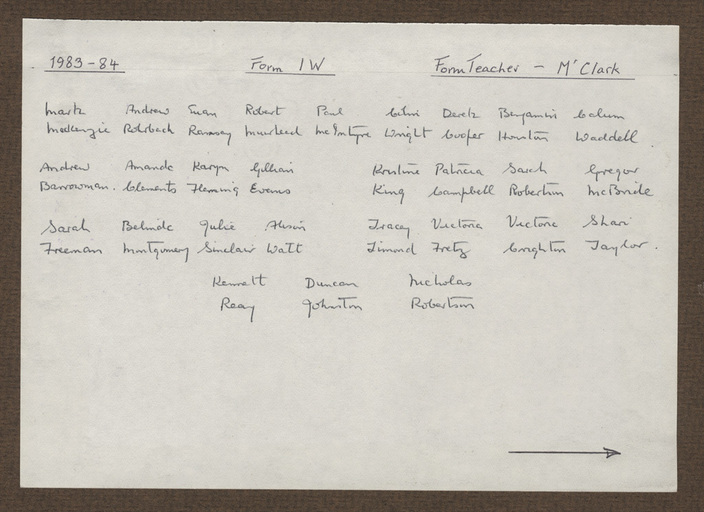 1983-84 Form 1W Form Teacher - Mr Clark
Mark Andrew Euan Robert Paul Clive Derek Benjamin Calum
Mackenzie. Rohrbach Ramsay Muirhead McIntyre Wright Cooper Houston Waddell
Andrew Amanda Karyn Gillian Kristine Patricia Sarah Gregor
Barrowman. Clements Fleming Evans King Campbell Robertson McBride
Sarah Belinda Julie Alison Tracey Victoria Victoria Shari
Freeman Montgomery Sinclair Watt Timond Fretz Crighton Taylor.
Kenneth Duncan Nicholas
Reay Johnston Robertson